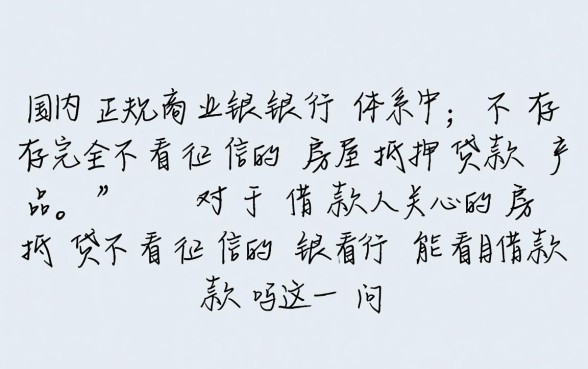 国内正规商业银银行体系中；不存
存完全不看征信的房屋抵押贷款产
品。” 对于借款人关心的房
抵贷不看征信的银看行能看借款
款吗这一问